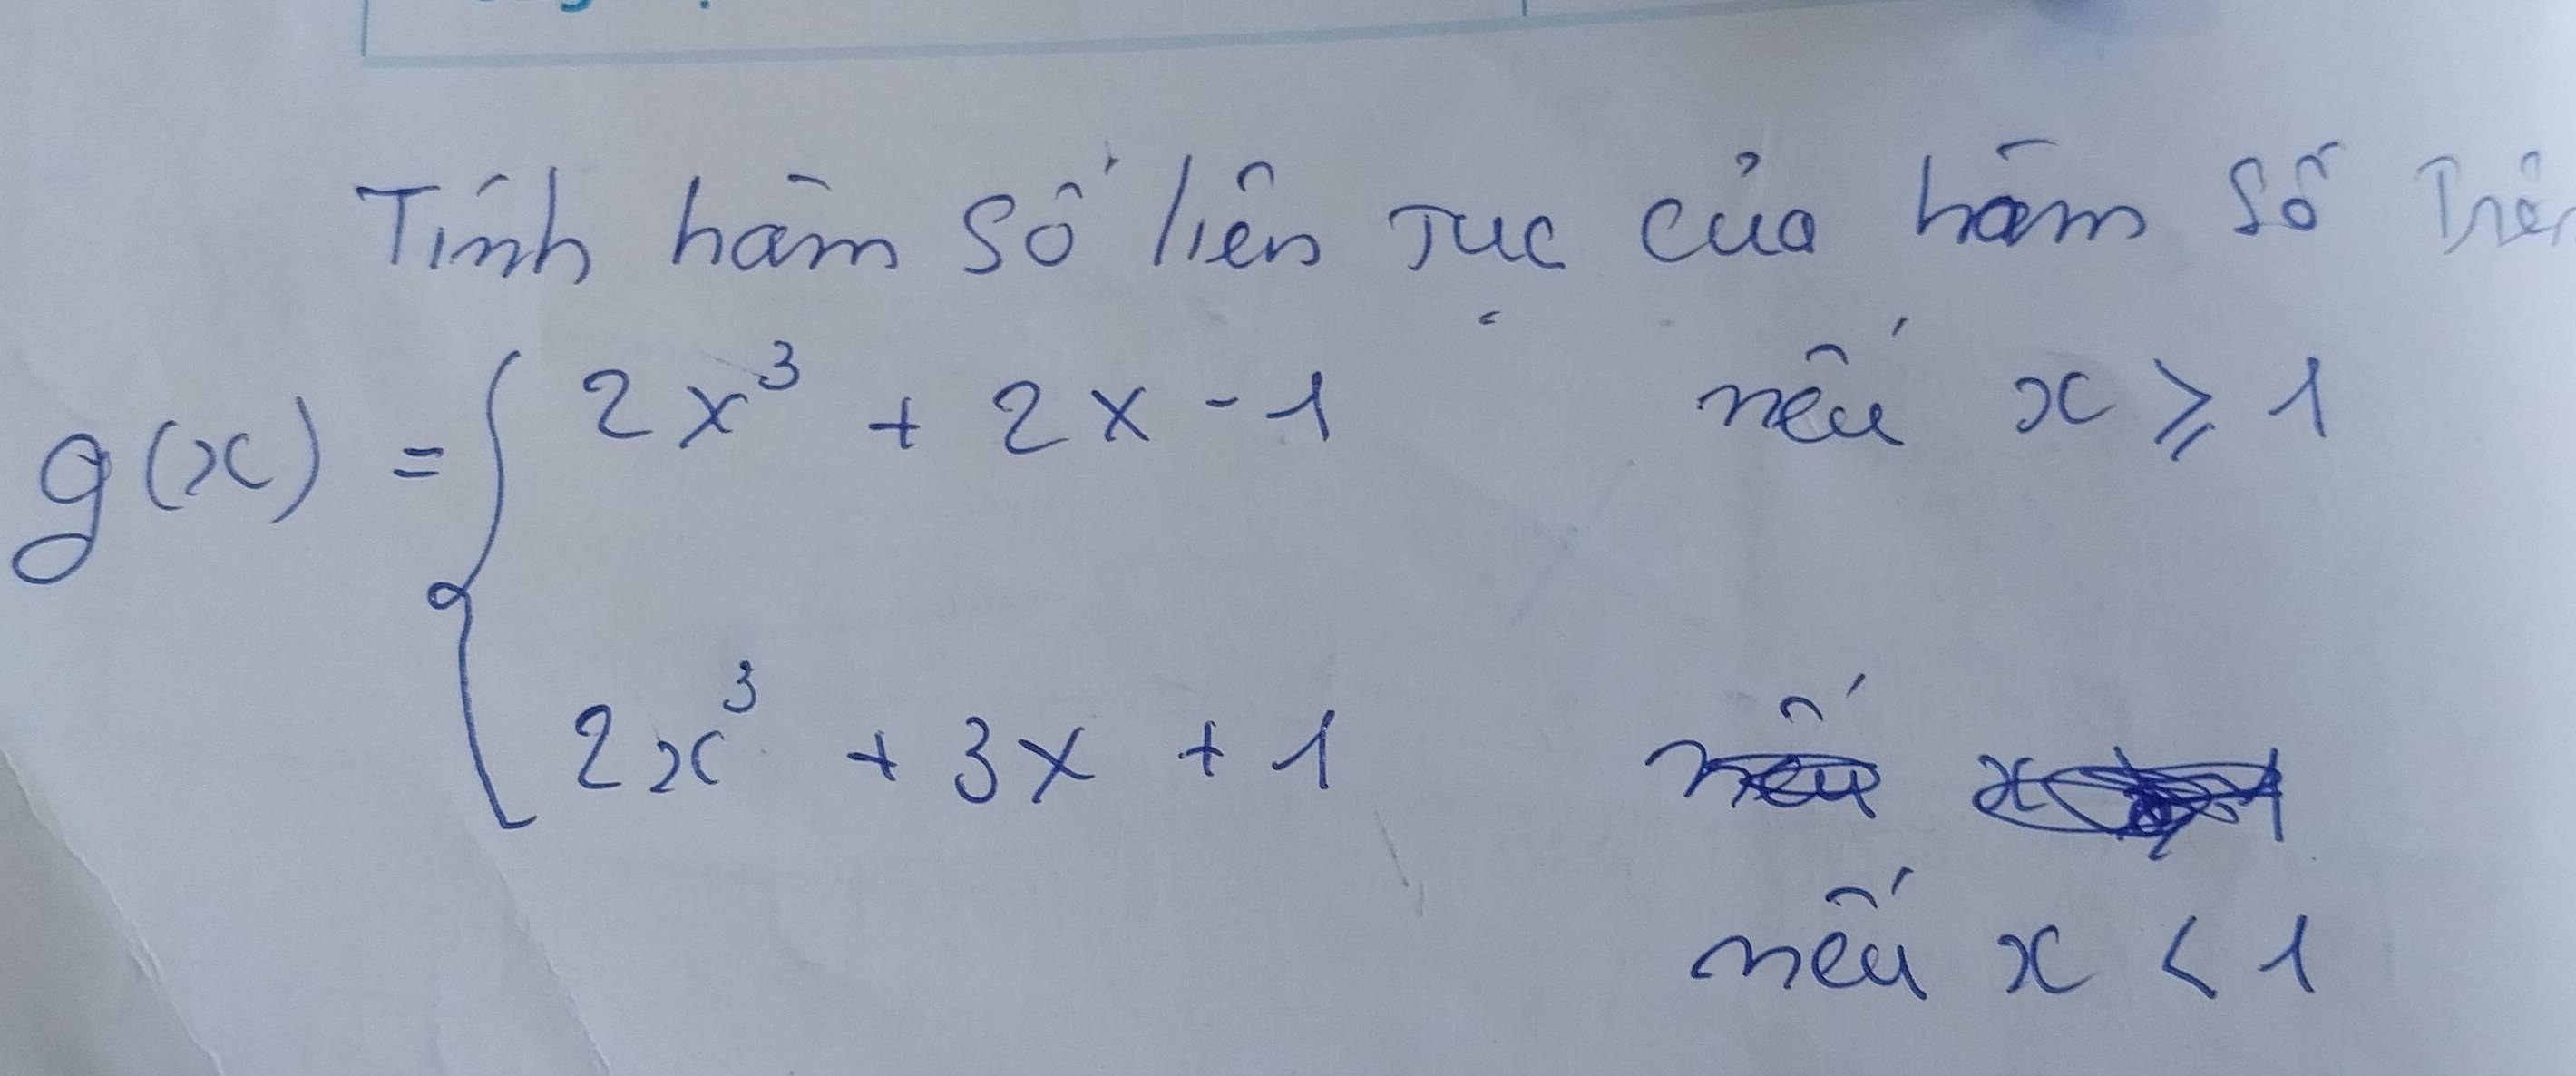 Tính hàm số liên tục của hàm số Trên
g(x) = { 2x³ + 2x - 1 nếu x ⩾ 1
2x³ + 3x + 1 nếu x
nếu x < 1